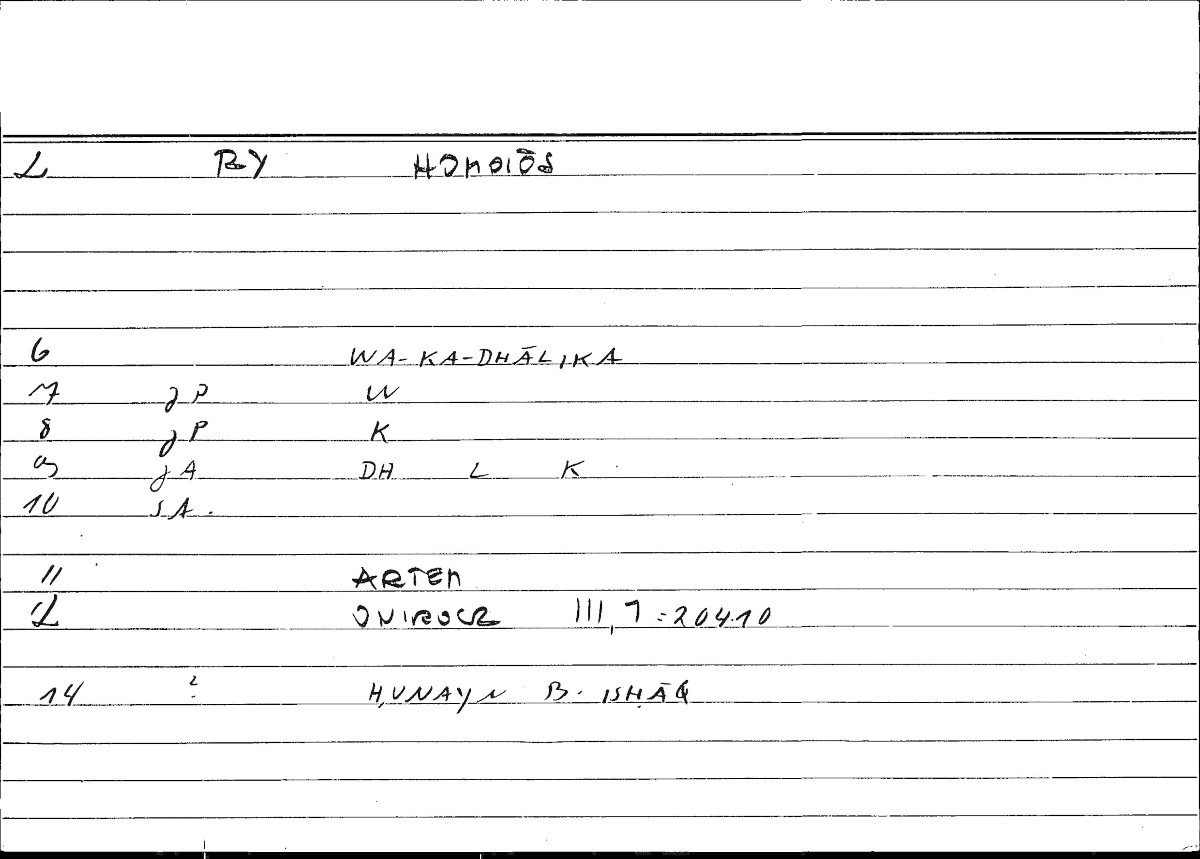 2 BY HOMOIŌS
6 WA-KA-DHĀLIKA
7 gP W
8 gP K
9 gA DH L K
10 SA.
11 ARTEM
12 ONIROCR III,7=204.10
14 ? ḤUNAYN B. ISḤĀQ